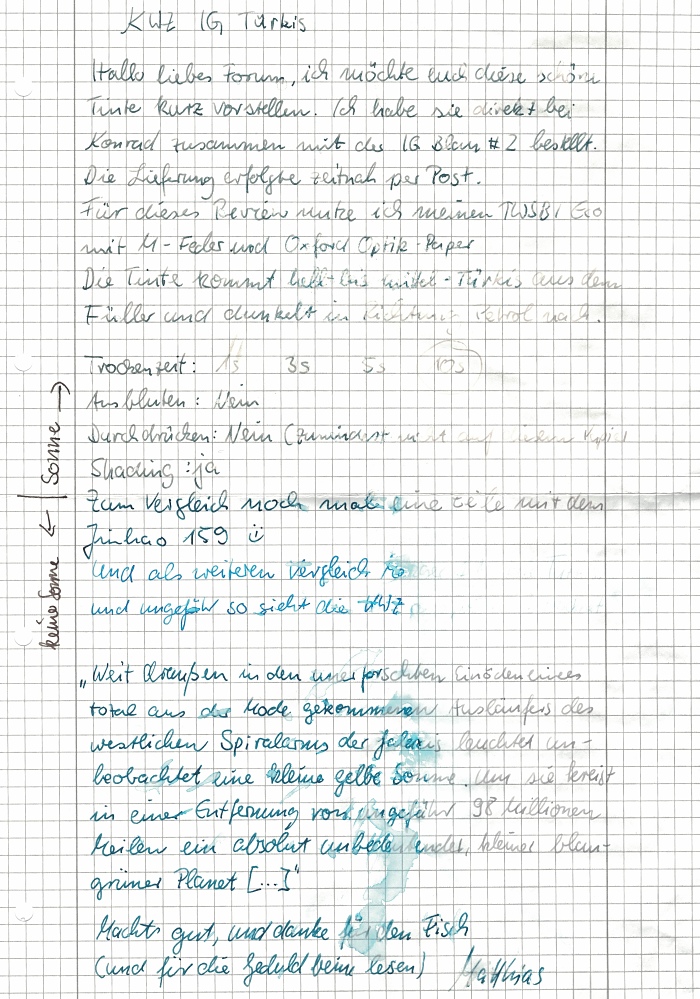 KWZ IG Türkis
Hallo liebes Forum, ich möchte euch diese schöne
Tinte kurz vorstellen. Ich habe sie direkt bei
Konrad zusammen mit der IG Blau #2 bestellt.
Die Lieferung erfolgte zeitnah per Post.
Für dieses Review nutze ich meinen TWSBI Eco
mit M-Feder und Oxford Optik-Paper
Die Tinte kommt hell-bis mittel-Türkis aus dem
Füller und dunkelt in Richtung Petrol nach.
Trockenzeit: 1s 3s 5s 10s
Ausbluten: Nein
Durchdrücken: Nein (zumindest nicht auf
Shading: ja
Zum Vergleich noch mal eine Zeile mit dem
Jinhao 159 ☺
Und als weiteren Vergleich
und ungefähr so sieht die KWZ
keine Sonne ← | Sonne →
„Weit draußen in den unerforschten Einöden eines
total aus der Mode gekommenen Ausläufers des
westlichen Spiralarms der Galaxis leuchtet un-
beobachtet eine kleine gelbe Sonne. Um sie kreist
in einer Entfernung von ungefähr 98 Millionen
Meilen ein absolut unbedeutender, kleiner blau-
grüner Planet [...]"
Machts gut, und danke für den Fisch
(und für die Geduld beim lesen) Matthias